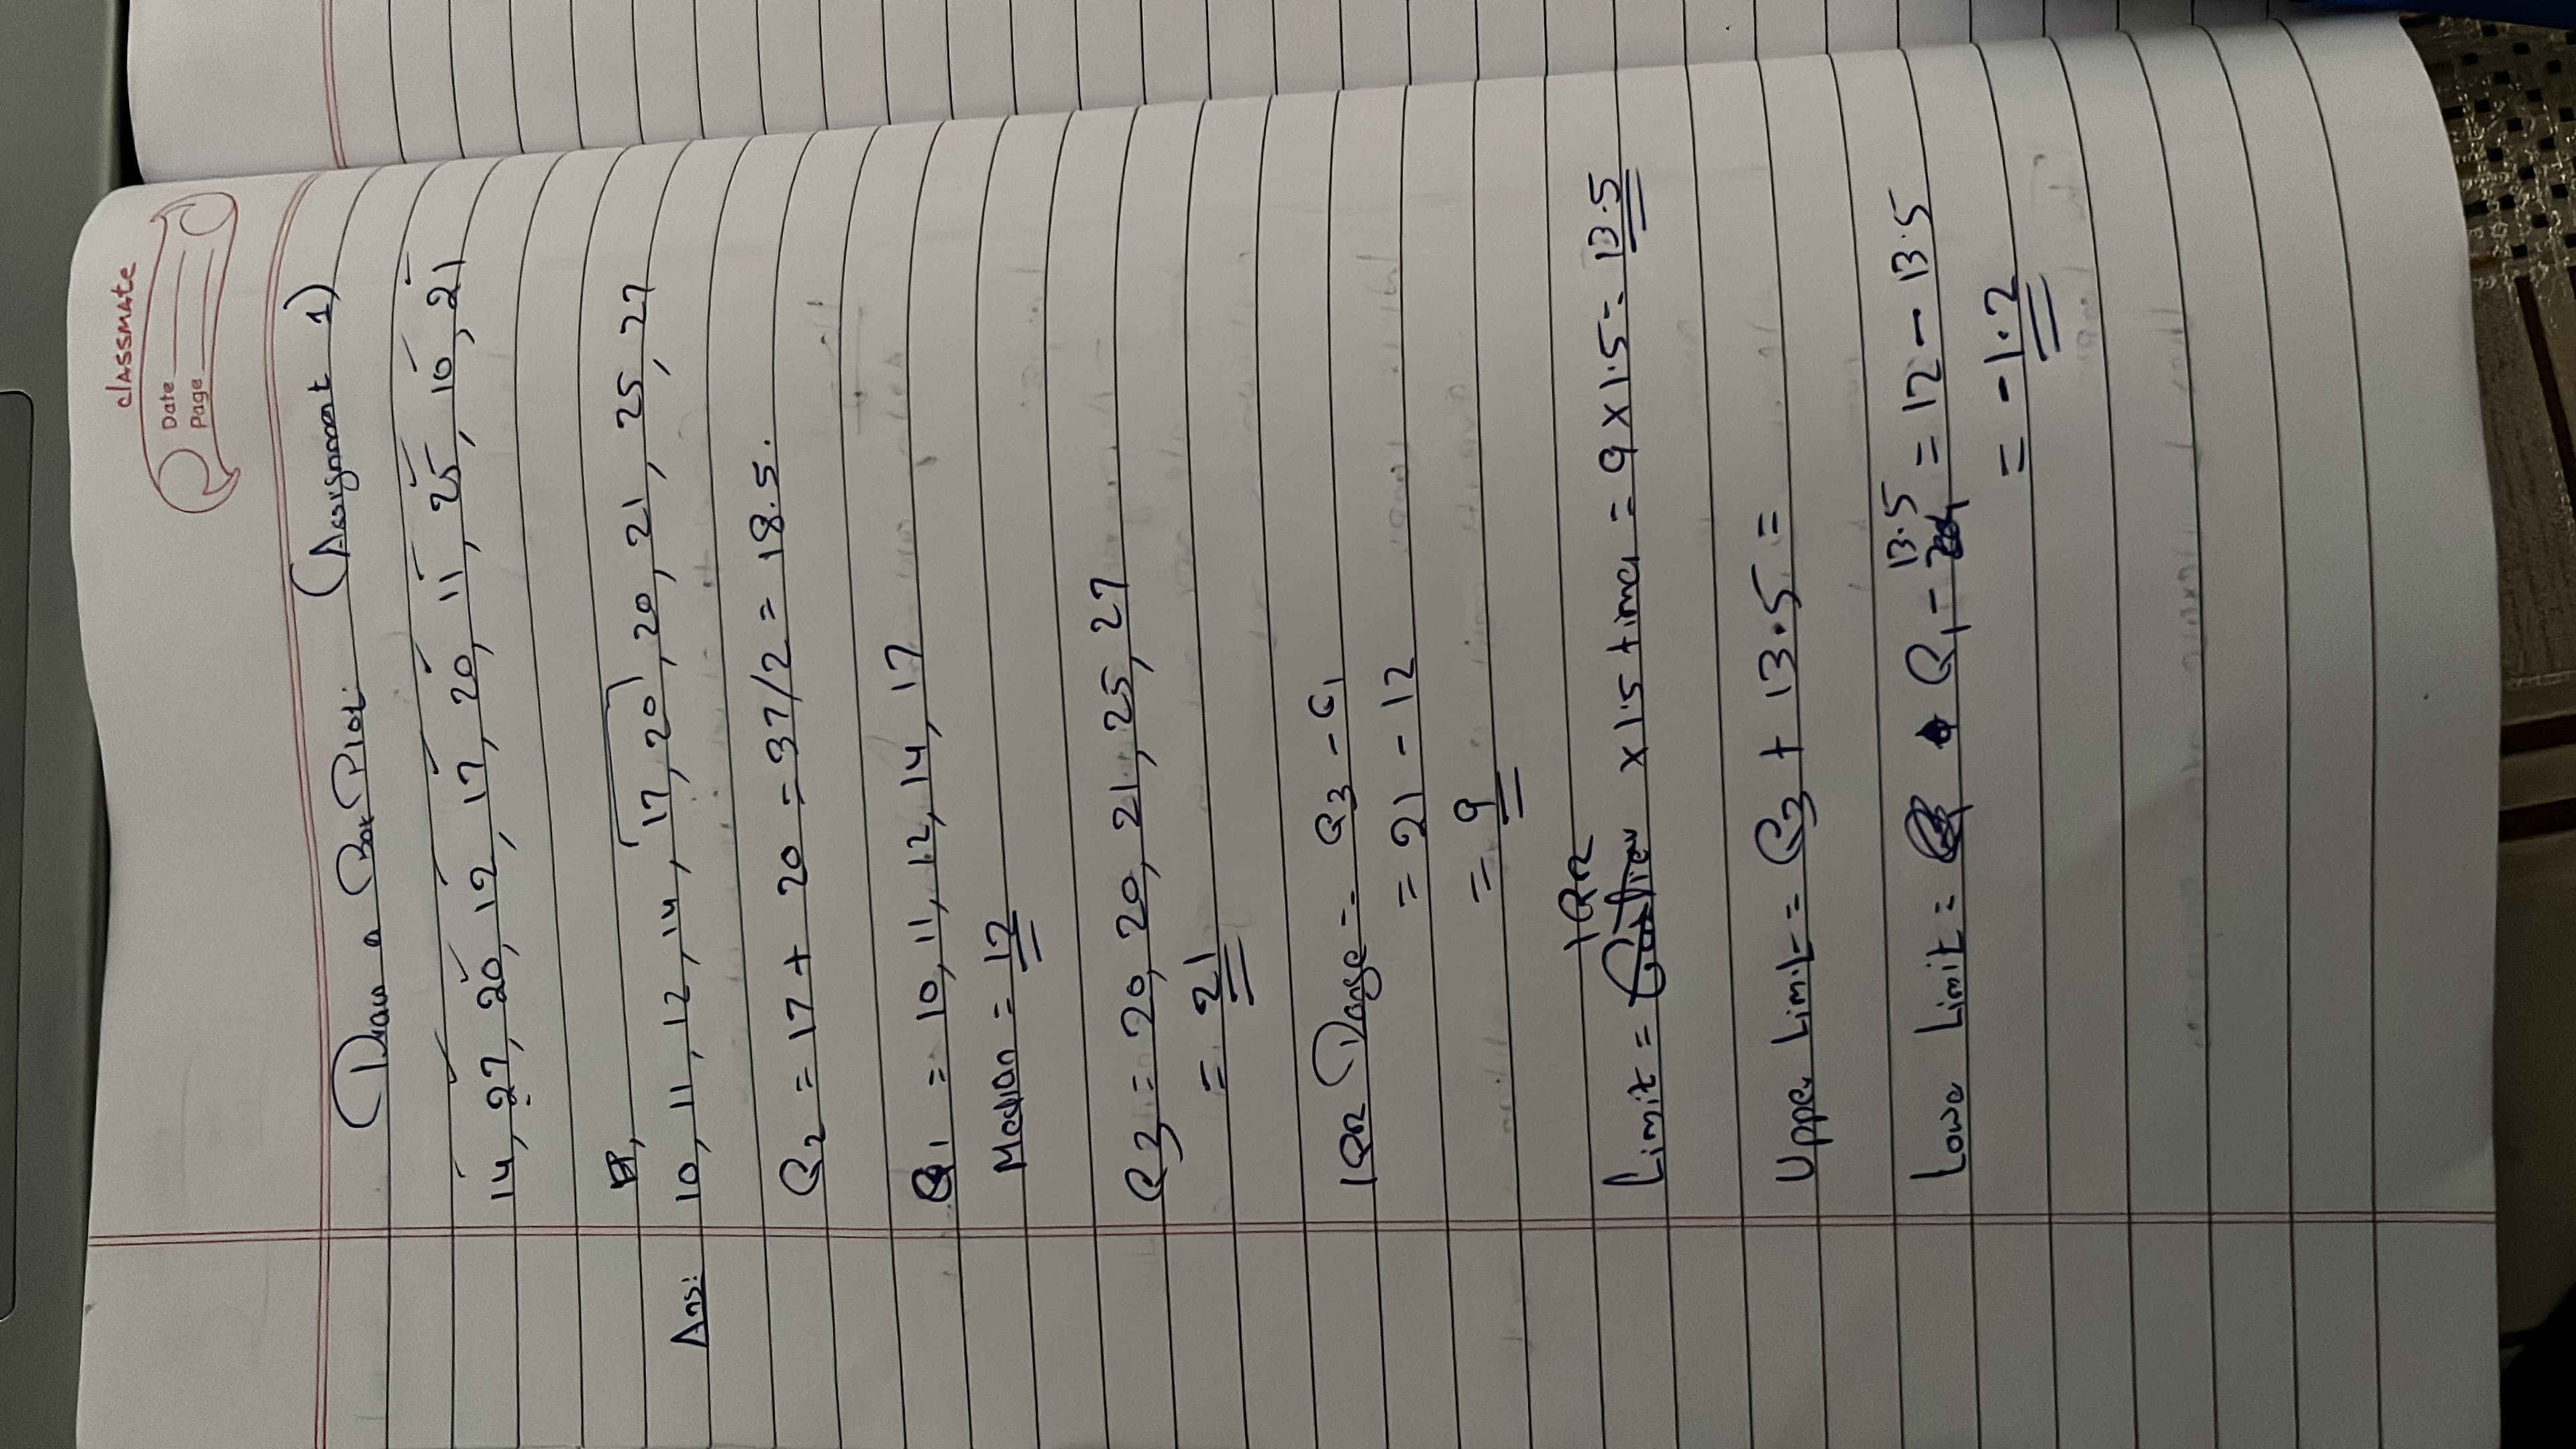 classmate
Date
Page
Draw a Box Plot. (Assignment 1)
14, 27, 20, 12, 17, 20, 11, 25, 10, 21
Ans: 10, 11, 12, 14, 17, 20, 20, 21, 25, 27
Q2 = 17 + 20 = 37/2 = 18.5.
Q1 = 10, 11, 12, 14, 17
Median = 12
Q3 = 20, 20, 21, 25, 27
= 21
IQR Range = Q3 - Q1
= 21 - 12
= 9
IQR
Limit = x 1.5 times = 9 x 1.5 = 13.5
Upper Limit = Q3 + 13.5 =
13.5
Lowe Limit = Q1 - = 12 - 13.5
= -1.2